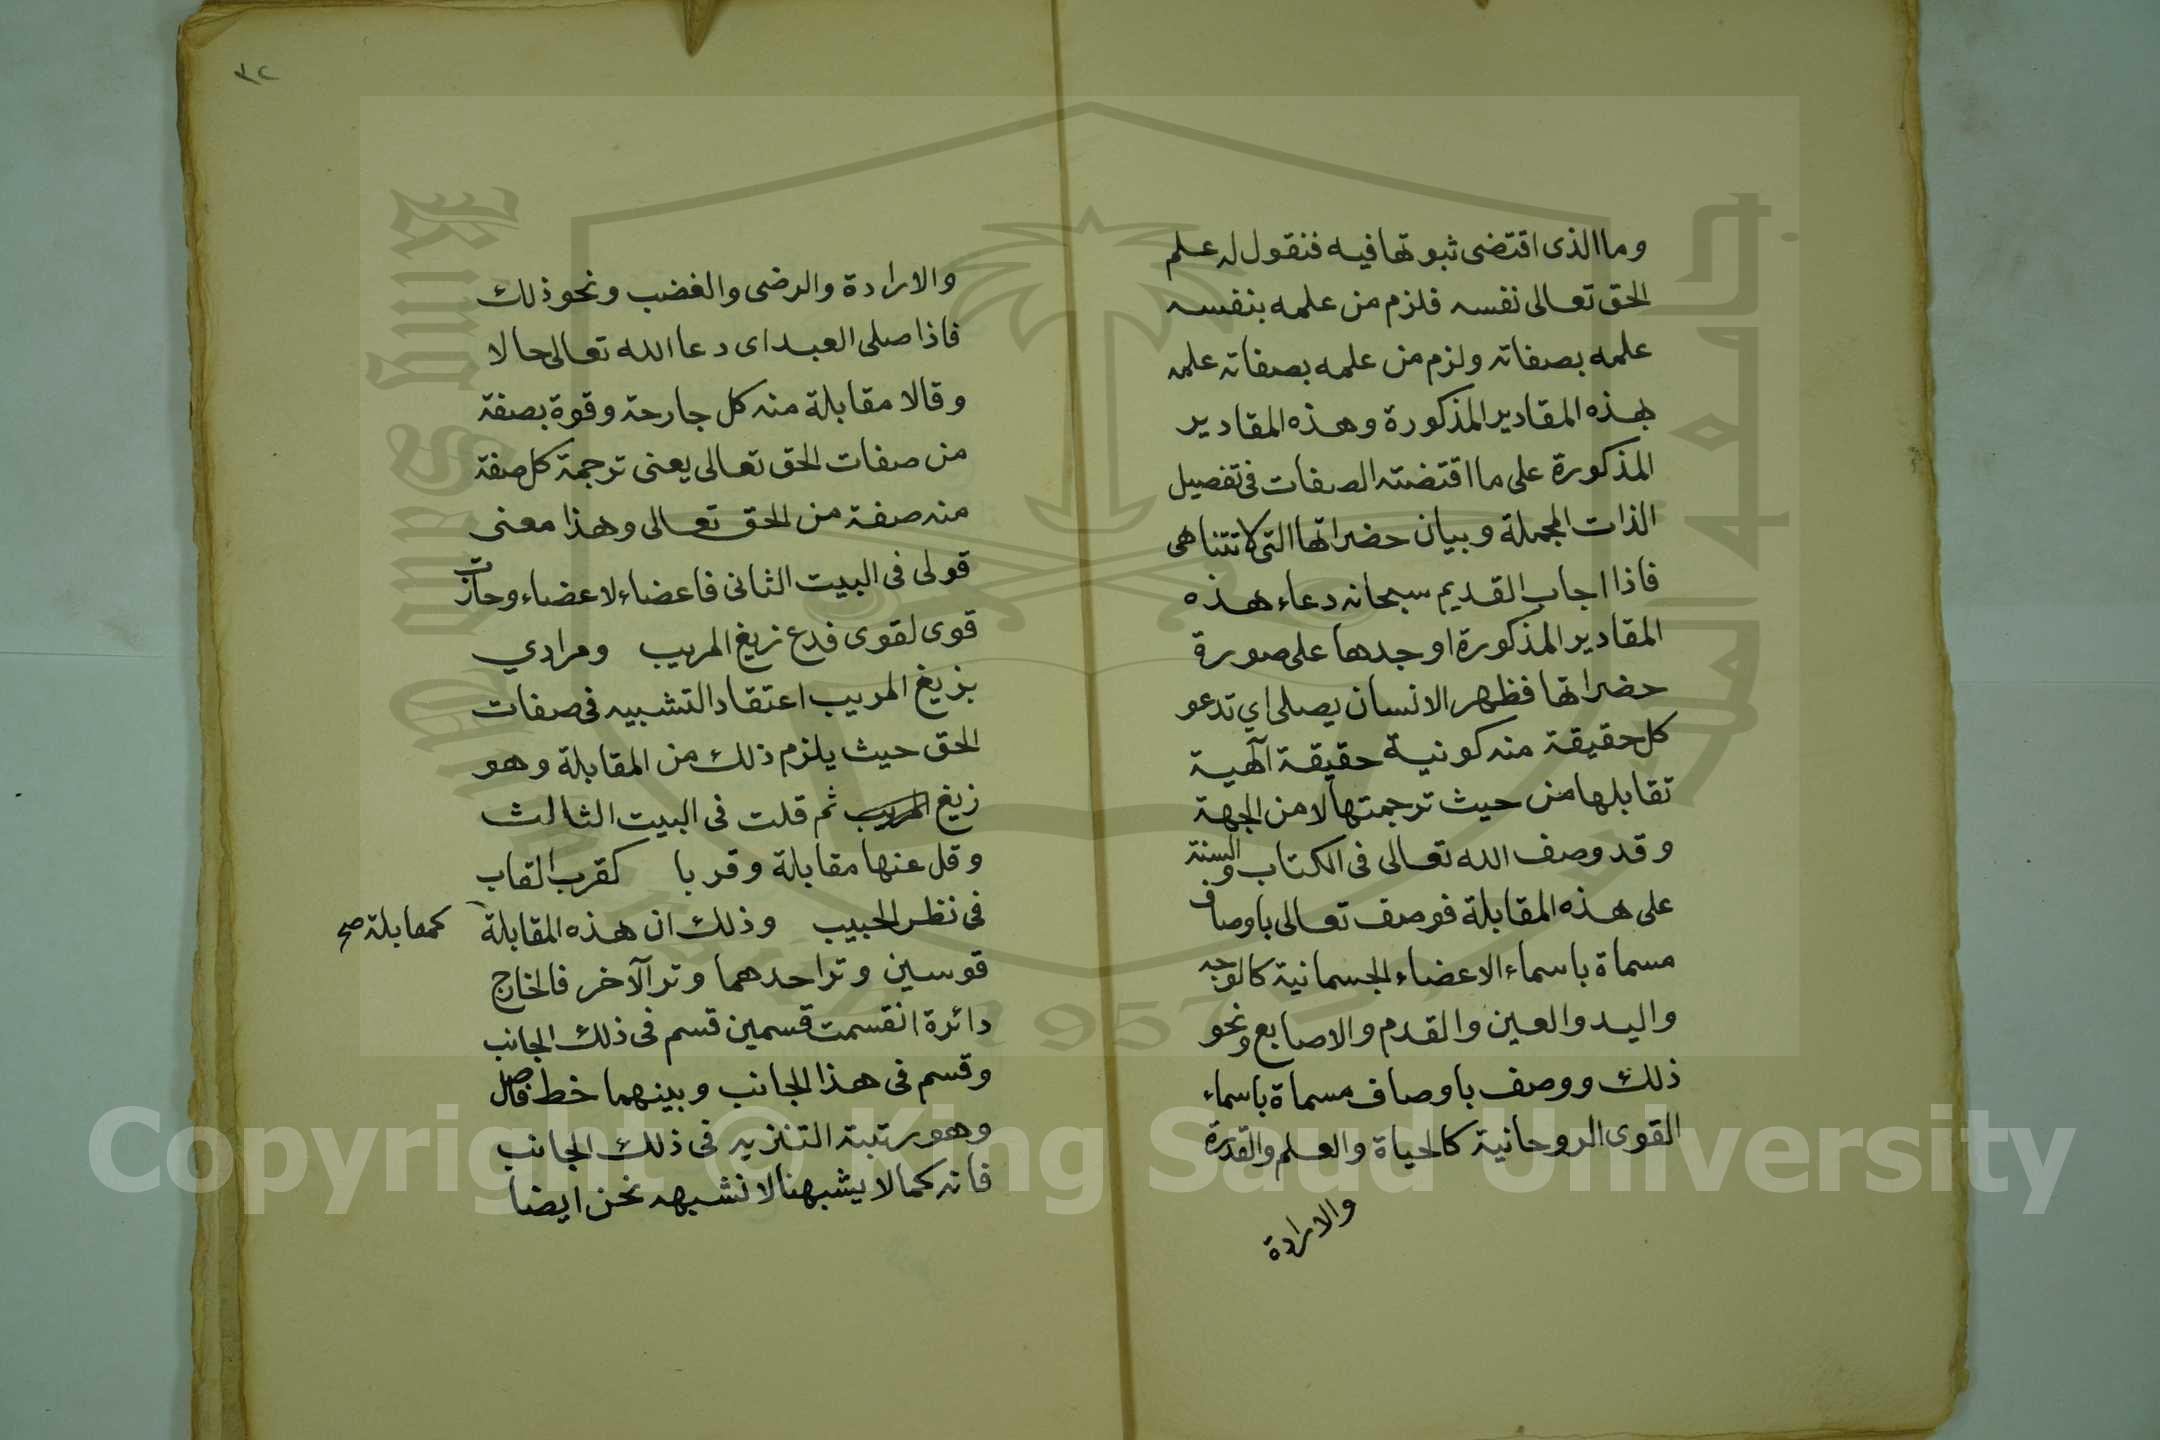 وما الذى اقتضى ثبوتها فيه فنقول له علم
الحق تعالى نفسه فلزم من علمه بنفسه
علمه بصفاته ولزم من علمه بصفاته علمه
بهذه المقادير المذكورة وهذه المقادير
المذكورة على ما اقتضته الصفات فى تفصيل
الذات المجملة وبيان حضراتها التى لا تتناهى
فاذا اجاب القديم سبحانه دعاء هذه
المقادير المذكورة اوجدها على صورة
حضراتها فظهر الانسان يصلى اي تدعو
كل حقيقة منه كونية حقيقة آلهية
تقابلها من حيث ترجمتها لا من الجهة
وقد وصف الله تعالى فى الكتاب والسنة
على هذه المقابلة فوصف تعالى باوصاف
مسماة باسماء الاعضاء الجسمانية كالوجه
واليد والعين والقدم والاصابع ونحو
ذلك ووصف باوصاف مسماة باسماء
القوى الروحانية كالحياة والعلم والقدرة
والارادة
٣٢
والارادة والرضى والغضب ونحو ذلك
فاذا صلى العبد اى دعا الله تعالى حالا
وقالا مقابلة منه كل جارحة وقوة بصفة
من صفات الحق تعالى يعنى ترجمة كل صفة
منه صفة من الحق تعالى وهذا معنى
قولى فى البيت الثانى فاعضاء لاعضاء وحازت
قوى لقوى فدع زيغ المريب ومرادي
بزيغ المريب اعتقاد التشبيه فى صفات
الحق حيث يلزم ذلك من المقابلة وهو
زيغ المريب ثم قلت فى البيت الثالث
وقل عنها مقابلة وقربا كقرب القاب
فى نظر الحبيب وذلك ان هذه المقابلة
كمقابلة صح
قوسين وتر احدهما وتر الآخر فالخارج
دائرة انقسمت قسمين قسم فى ذلك الجانب
وقسم فى هذا الجانب وبينهما خط فاصل
وهو رتبة التنزيه فى ذلك الجانب
فانه كما لا يشبهنا لا نشبهه نحن ايضا
King Saud University
جامعة الملك سعود
1957
Copyright © King Saud University